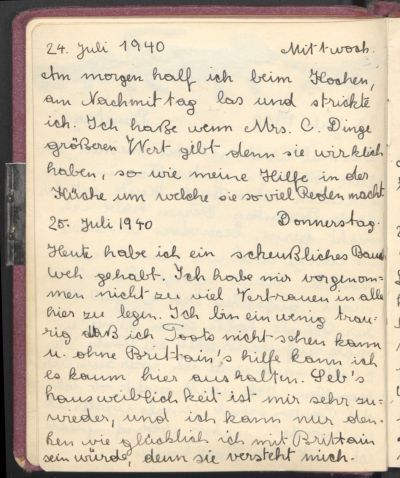 24. Juli 1940 Mittwoch.
Am morgen half ich beim Kochen,
am Nachmittag las und strickte
ich. Ich haße wenn Mrs. C. Dinge
größeren Wert gibt denn sie wirklich
haben, so wie meine Hilfe in der
Küche um welche sie so viel Reden macht.
25. Juli 1940 Donnerstag.
Heute habe ich ein scheußliches Bauch
weh gehabt. Ich habe mir vorgenom-
men nicht zu viel Vertrauen in alle
hier zu legen. Ich bin ein wenig trau-
rig daß ich Toots nicht sehen kann
u. ohne Brittain's hilfe kann ich
es kaum hier aushalten. Seb's
hausweiblichkeit ist mir sehr zu-
wieder, und ich kann nur den-
ken wie glücklich ich mit Brittain
sein würde, denn sie versteht mich.